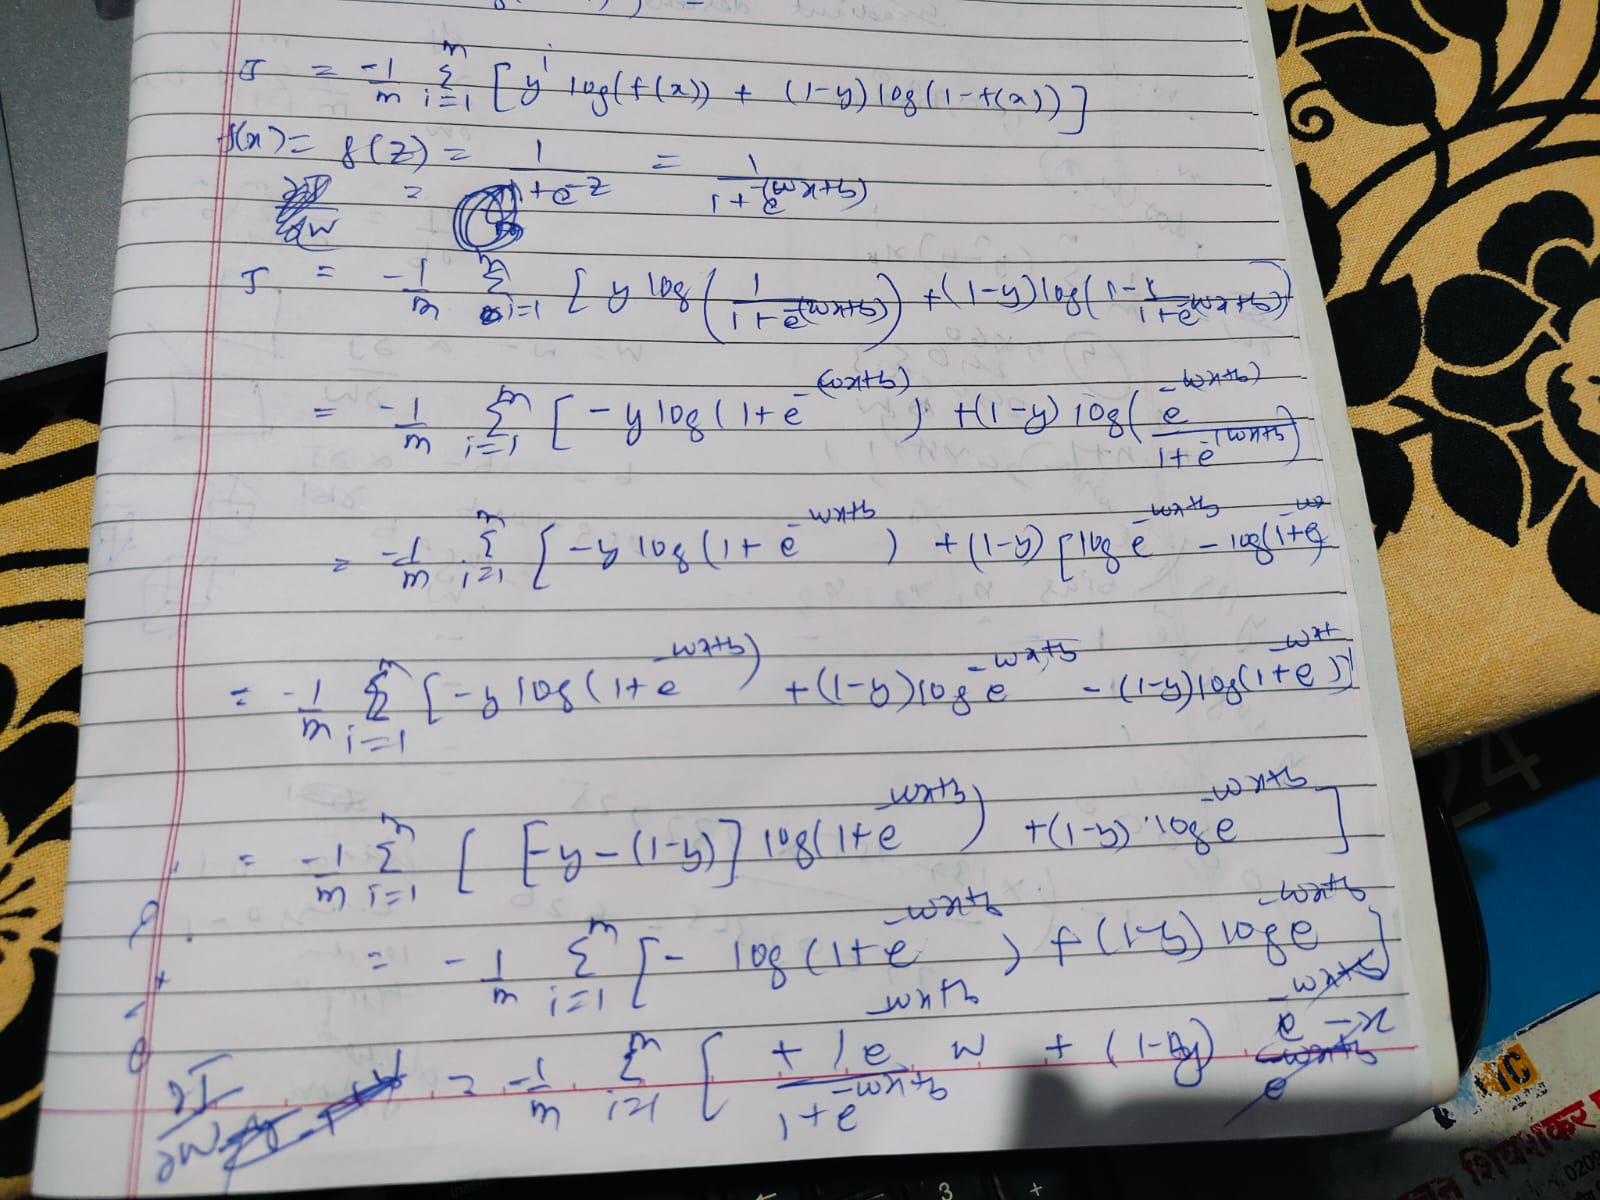 J = -1/m Σ_{i=1}^{m} [ y^i log(f(x)) + (1-y) log(1-f(x)) ]
f(x) = g(z) = 1/(1+e^{-z}) = 1/(1+e^{-(wx+b)})
∂J/∂w =
J = -1/m Σ_{i=1}^{m} [ y log( 1/(1+e^{-(wx+b)}) ) + (1-y) log( 1 - 1/(1+e^{-(wx+b)}) )
= -1/m Σ_{i=1}^{m} [ -y log(1+e^{-(wx+b)}) + (1-y) log( e^{-(wx+b)}/(1+e^{-(wx+b)}) )
= -1/m Σ_{i=1}^{m} [ -y log(1+e^{-wx+b}) + (1-y) [ log e^{-wx+b} - log(1+e^{-wx})
= -1/m Σ_{i=1}^{m} [ -y log(1+e^{-wx+b}) + (1-y) log e^{-wx+b} - (1-y) log(1+e^{-wx+}) ]
= -1/m Σ_{i=1}^{m} [ [-y-(1-y)] log(1+e^{-wx+b}) + (1-y) · log e^{-wx+b} ]
= -1/m Σ_{i=1}^{m} [ - log(1+e^{-wx+b}) + (1-y) log e^{-wx+b} ]
∂J/∂w = -1/m Σ_{i=1}^{m} [ + 1 e^{-wx+b}/(1+e^{-wx+b}) w + (1-y) -x
24
3
+
0209